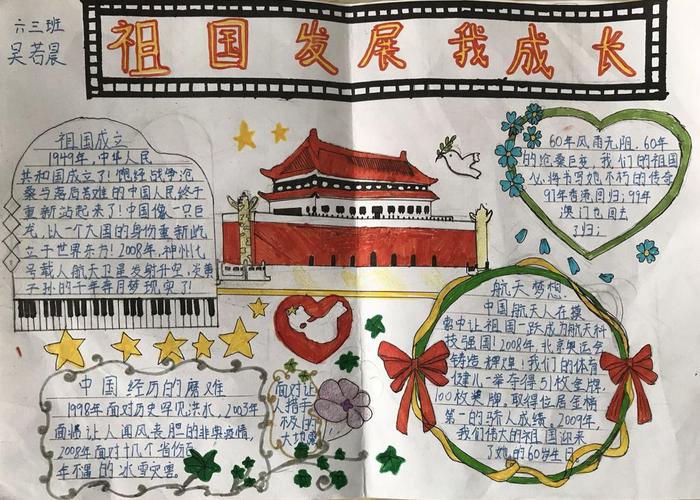 六三班
吴若晨
祖国发展我成长
祖国成立
1949年,中华人民
共和国成立了!饱经战争沧
桑与落后苦难的中国人民终于
重新站起来了!中国像一只巨
龙,以一个大国的身份重新屹
立于世界东方!2008年,神州七
号载人航天卫星发射升空,炎黄
子孙的千年奔月梦现实了!
60年风雨无阻,60年
的沧桑巨变,我们的祖国
必将书写她不朽的传奇
97年香港回归;99年
澳门也回去
了归;
航天梦想:
中国航天人在摸
索中让祖国一跃成为航天科
技强国!2008年,北京奥运会
铸造辉煌!我们的体育
健儿一举夺得51枚金牌,
100枚奖牌,取得位居金榜
第一的骄人成绩。2009年,
我们伟大的祖国迎来
了她的60岁生日
中国经历的磨难
1998年面对历史罕见洪水,2003年
面临让人闻风丧胆的非典疫情,
2008年面对十几个省份百
年不遇的冰雪灾害。
面对让
人措手
不及的
大地震